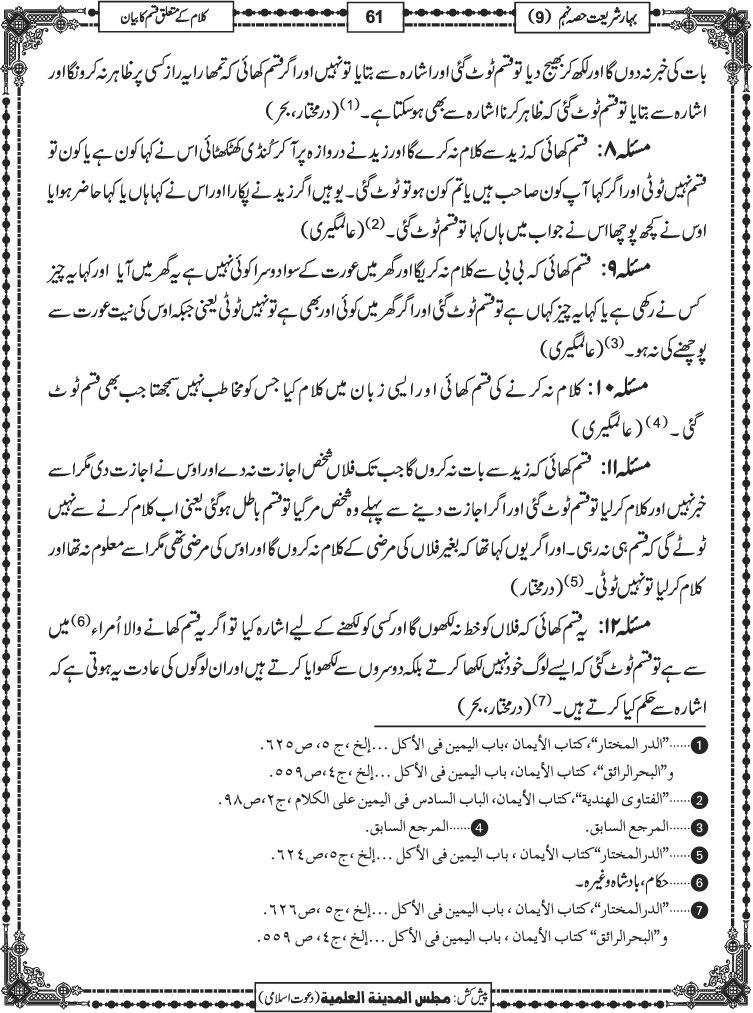 بہار شریعت حصہ نہم (9)
61
کلام کے متعلق قسم کا بیان
بات کی خبر نہ دوں گا اور لکھ کر بھیج دیا تو قسم ٹوٹ گئی اور اشارہ سے بتایا تو نہیں اور اگر قسم کھائی کہ تمھارا یہ راز کسی پر ظاہر نہ کرونگا اور
اشارہ سے بتایا تو قسم ٹوٹ گئی کہ ظاہر کرنا اشارہ سے بھی ہوسکتا ہے۔(1) (درمختار، بحر)
مسئلہ ۸: قسم کھائی کہ زید سے کلام نہ کرے گا اور زید نے دروازہ پر آ کر کُنڈی کھٹکھٹائی اس نے کہا کون ہے یا کون تو
قسم نہیں ٹوٹی اور اگر کہا آپ کون صاحب ہیں یا تم کون ہو تو ٹوٹ گئی۔ یوہیں اگر زید نے پکارا اور اس نے کہا ہاں یا کہا حاضر ہوا یا
اوس نے کچھ پوچھا اس نے جواب میں ہاں کہا تو قسم ٹوٹ گئی۔(2) (عالمگیری)
مسئلہ ۹: قسم کھائی کہ بی بی سے کلام نہ کریگا اور گھر میں عورت کے سوا دوسرا کوئی نہیں ہے یہ گھر میں آیا اور کہا یہ چیز
کس نے رکھی ہے یا کہا یہ چیز کہاں ہے تو قسم ٹوٹ گئی اور اگر گھر میں کوئی اور بھی ہے تو نہیں ٹوٹی یعنی جبکہ اوس کی نیت عورت سے
پوچھنے کی نہ ہو۔(3) (عالمگیری)
مسئلہ ۱۰: کلام نہ کرنے کی قسم کھائی اور ایسی زبان میں کلام کیا جس کو مخاطب نہیں سمجھتا جب بھی قسم ٹوٹ
گئی۔(4) (عالمگیری)
مسئلہ ۱۱: قسم کھائی کہ زید سے بات نہ کروں گا جب تک فلاں شخص اجازت نہ دے اور اوس نے اجازت دی مگر اسے
خبر نہیں اور کلام کرلیا تو قسم ٹوٹ گئی اور اگر اجازت دینے سے پہلے وہ شخص مرگیا تو قسم باطل ہوگئی یعنی اب کلام کرنے سے نہیں
ٹوٹے گی کہ قسم ہی نہ رہی۔ اور اگر یوں کہا تھا کہ بغیر فلاں کی مرضی کے کلام نہ کروں گا اور اوس کی مرضی تھی مگر اسے معلوم نہ تھا اور
کلام کرلیا تو نہیں ٹوٹی۔(5) (درمختار)
مسئلہ ۱۲: یہ قسم کھائی کہ فلاں کو خط نہ لکھوں گا اور کسی کو لکھنے کے لیے اشارہ کیا تو اگر یہ قسم کھانے والا اُمراء(6) میں
سے ہے تو قسم ٹوٹ گئی کہ ایسے لوگ خود نہیں لکھا کرتے بلکہ دوسروں سے لکھوایا کرتے ہیں اور ان لوگوں کی عادت یہ ہوتی ہے کہ
اشارہ سے حکم کیا کرتے ہیں۔(7) (درمختار، بحر)
1 ......"الدر المختار"، کتاب الأیمان، باب الیمین فی الأکل...إلخ، ج ٥، ص ٦٢٥.
و"البحرالرائق"، کتاب الأیمان، باب الیمین فی الأکل ...إلخ، ج٤، ص ٥٥٩.
2 ......"الفتاوی الهندیة"، کتاب الأیمان، الباب السادس فی الیمین علی الکلام، ج٢، ص٩٨.
3 ......المرجع السابق. 4 ......المرجع السابق.
5 ......"الدرالمختار" کتاب الأیمان ، باب الیمین فی الأکل ...إلخ، ج٥، ص٦٢٤.
6 ......حکام، بادشاہ وغیرہ۔
7 ......"الدرالمختار"، کتاب الأیمان ، باب الیمین فی الأکل ...إلخ، ج٥، ص٦٢٦.
و"البحرالرائق" کتاب الأیمان ، باب الیمین فی الأکل ...إلخ، ج٤، ص ٥٥٩.
پیش کش: مجلس المدینة العلمیة (دعوت اسلامی)